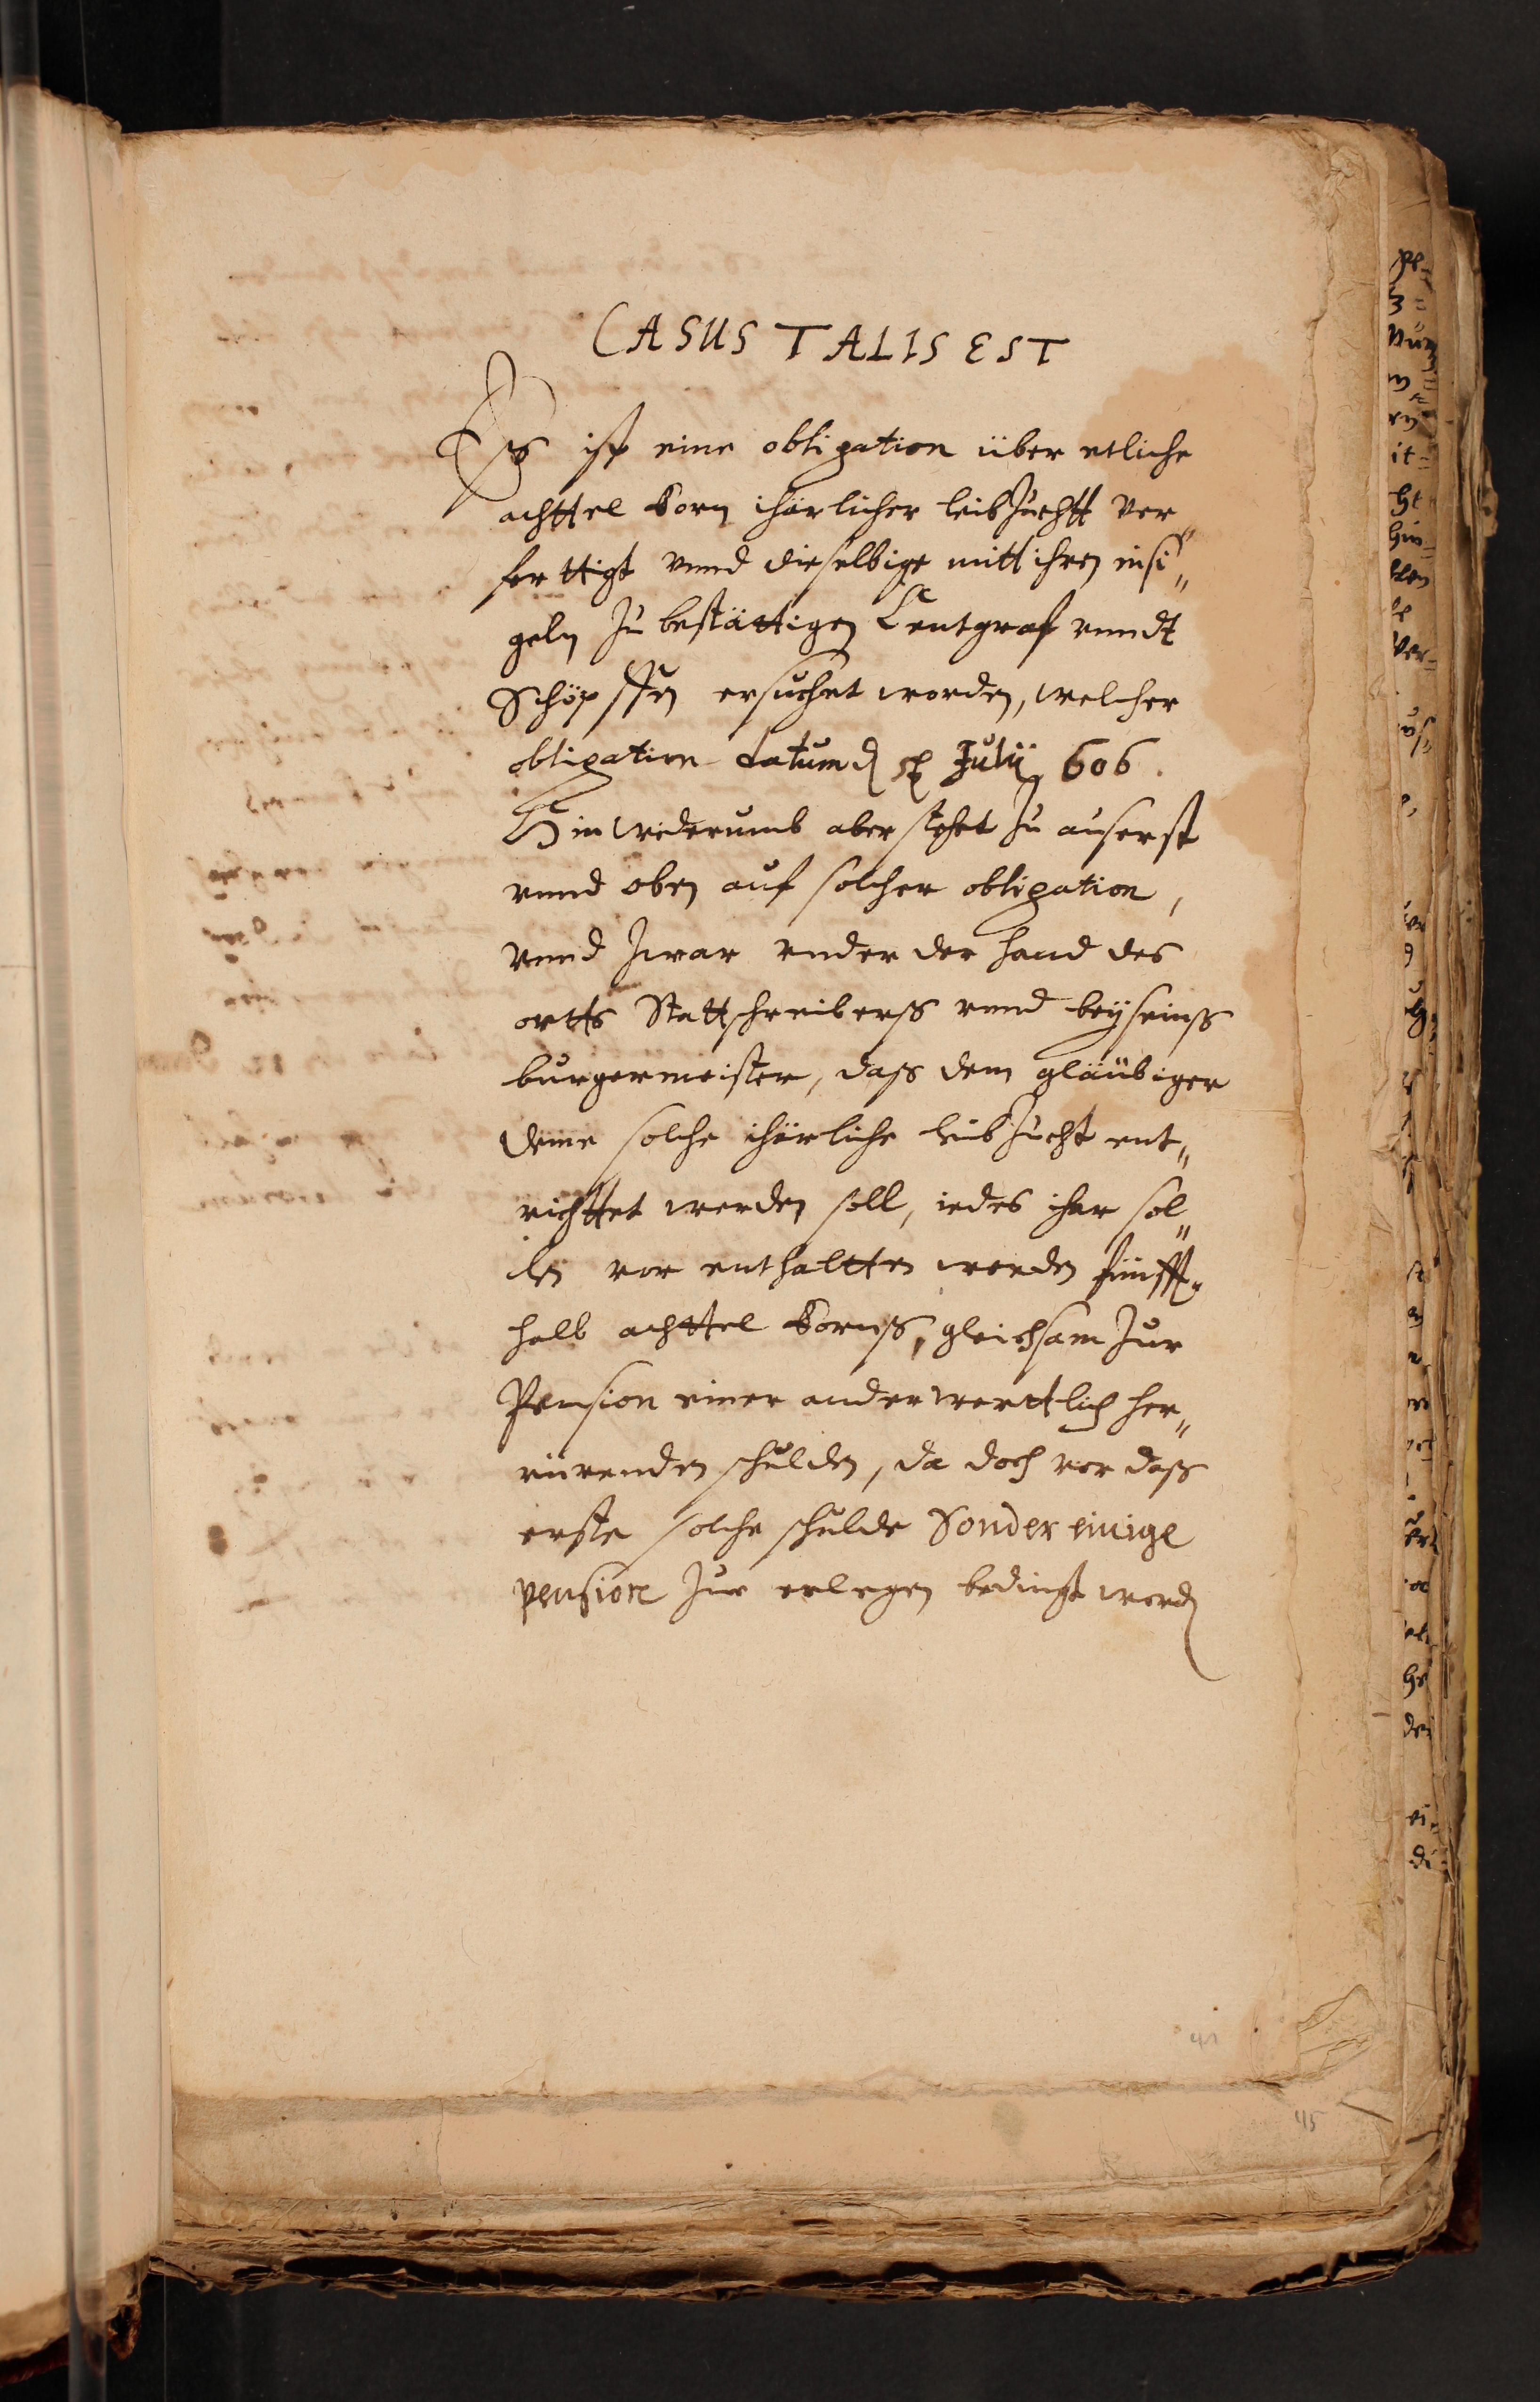 CASUS TALIS EST
Es ist eine obligation über etliche
achttel korn ihärlicher leibzuchtt ver„
ferttigt vnnd dieselbige mitt ihren insi„
geln zu bestättigen Centgraf vnndt
Schöpffen ersuchet worden, welcher
obligation datum d Julij 606.
Hinwiderumb aber stehet zu auserst
vnnd oben auf solcher obligation,
vnnd zwar vnder der hand des
ortts Stattschreiberss vnnd beyseinss
burgermeister, dass dem gläubiger
deme solche ihärliche leibzucht ent„
richttet werden soll, iedes ihar sol„
len vor enthaltten werden fünfft„
halb achttel kornss, gleichsam zur
Pension einer anderwerttlich her„
rürenden schulden, da doch vor dass
erste solche schulde Sonder einige
pension zur erlegen bedingt word
41
45